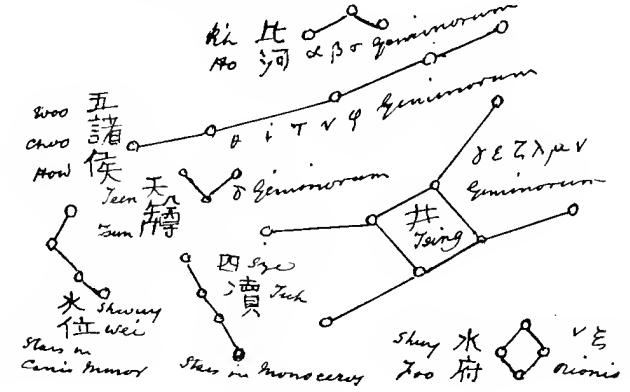 比
河
Ho
α β σ Geminorum
Woo 五
Choo 諸
How 侯
θ ι τ ν φ Geminorum
Teen 天
Tsun 罇
δ Geminorum
γ ε ζ λ μ ν
Geminorum
井
Tsing
水 Shwuy
位 Wei
Stars in
Canis Minor
四 Sze
瀆 Tuh
Stars in Monoceros
Shwy 水
Foo 府
ν ξ
Orionis